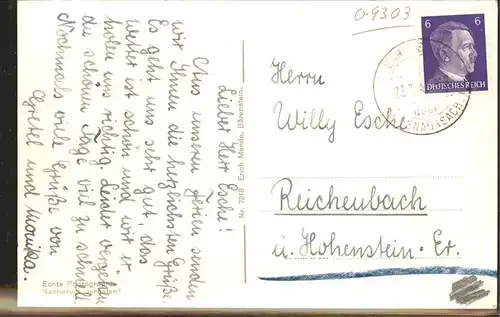 O-9303
Lieber Herr Esche!
Aus unseren Ferien senden
wir Ihnen die herzlichsten Grüße.
Es geht uns sehr gut, das
Wetter ist schön und wir er-
holen uns richtig. Leider vergehen
die schönen Tage viel zu schnell
Nochmals viele Grüße von
Gretel und Monika.
Echte Photographie
Nachdruck verboten!
Nr. 7218 Erich Mende, Bärenstein.
6 6
DEUTSCHES REICH
Herrn
Willy Esche
Reichenbach
ü. Hohenstein-Er.